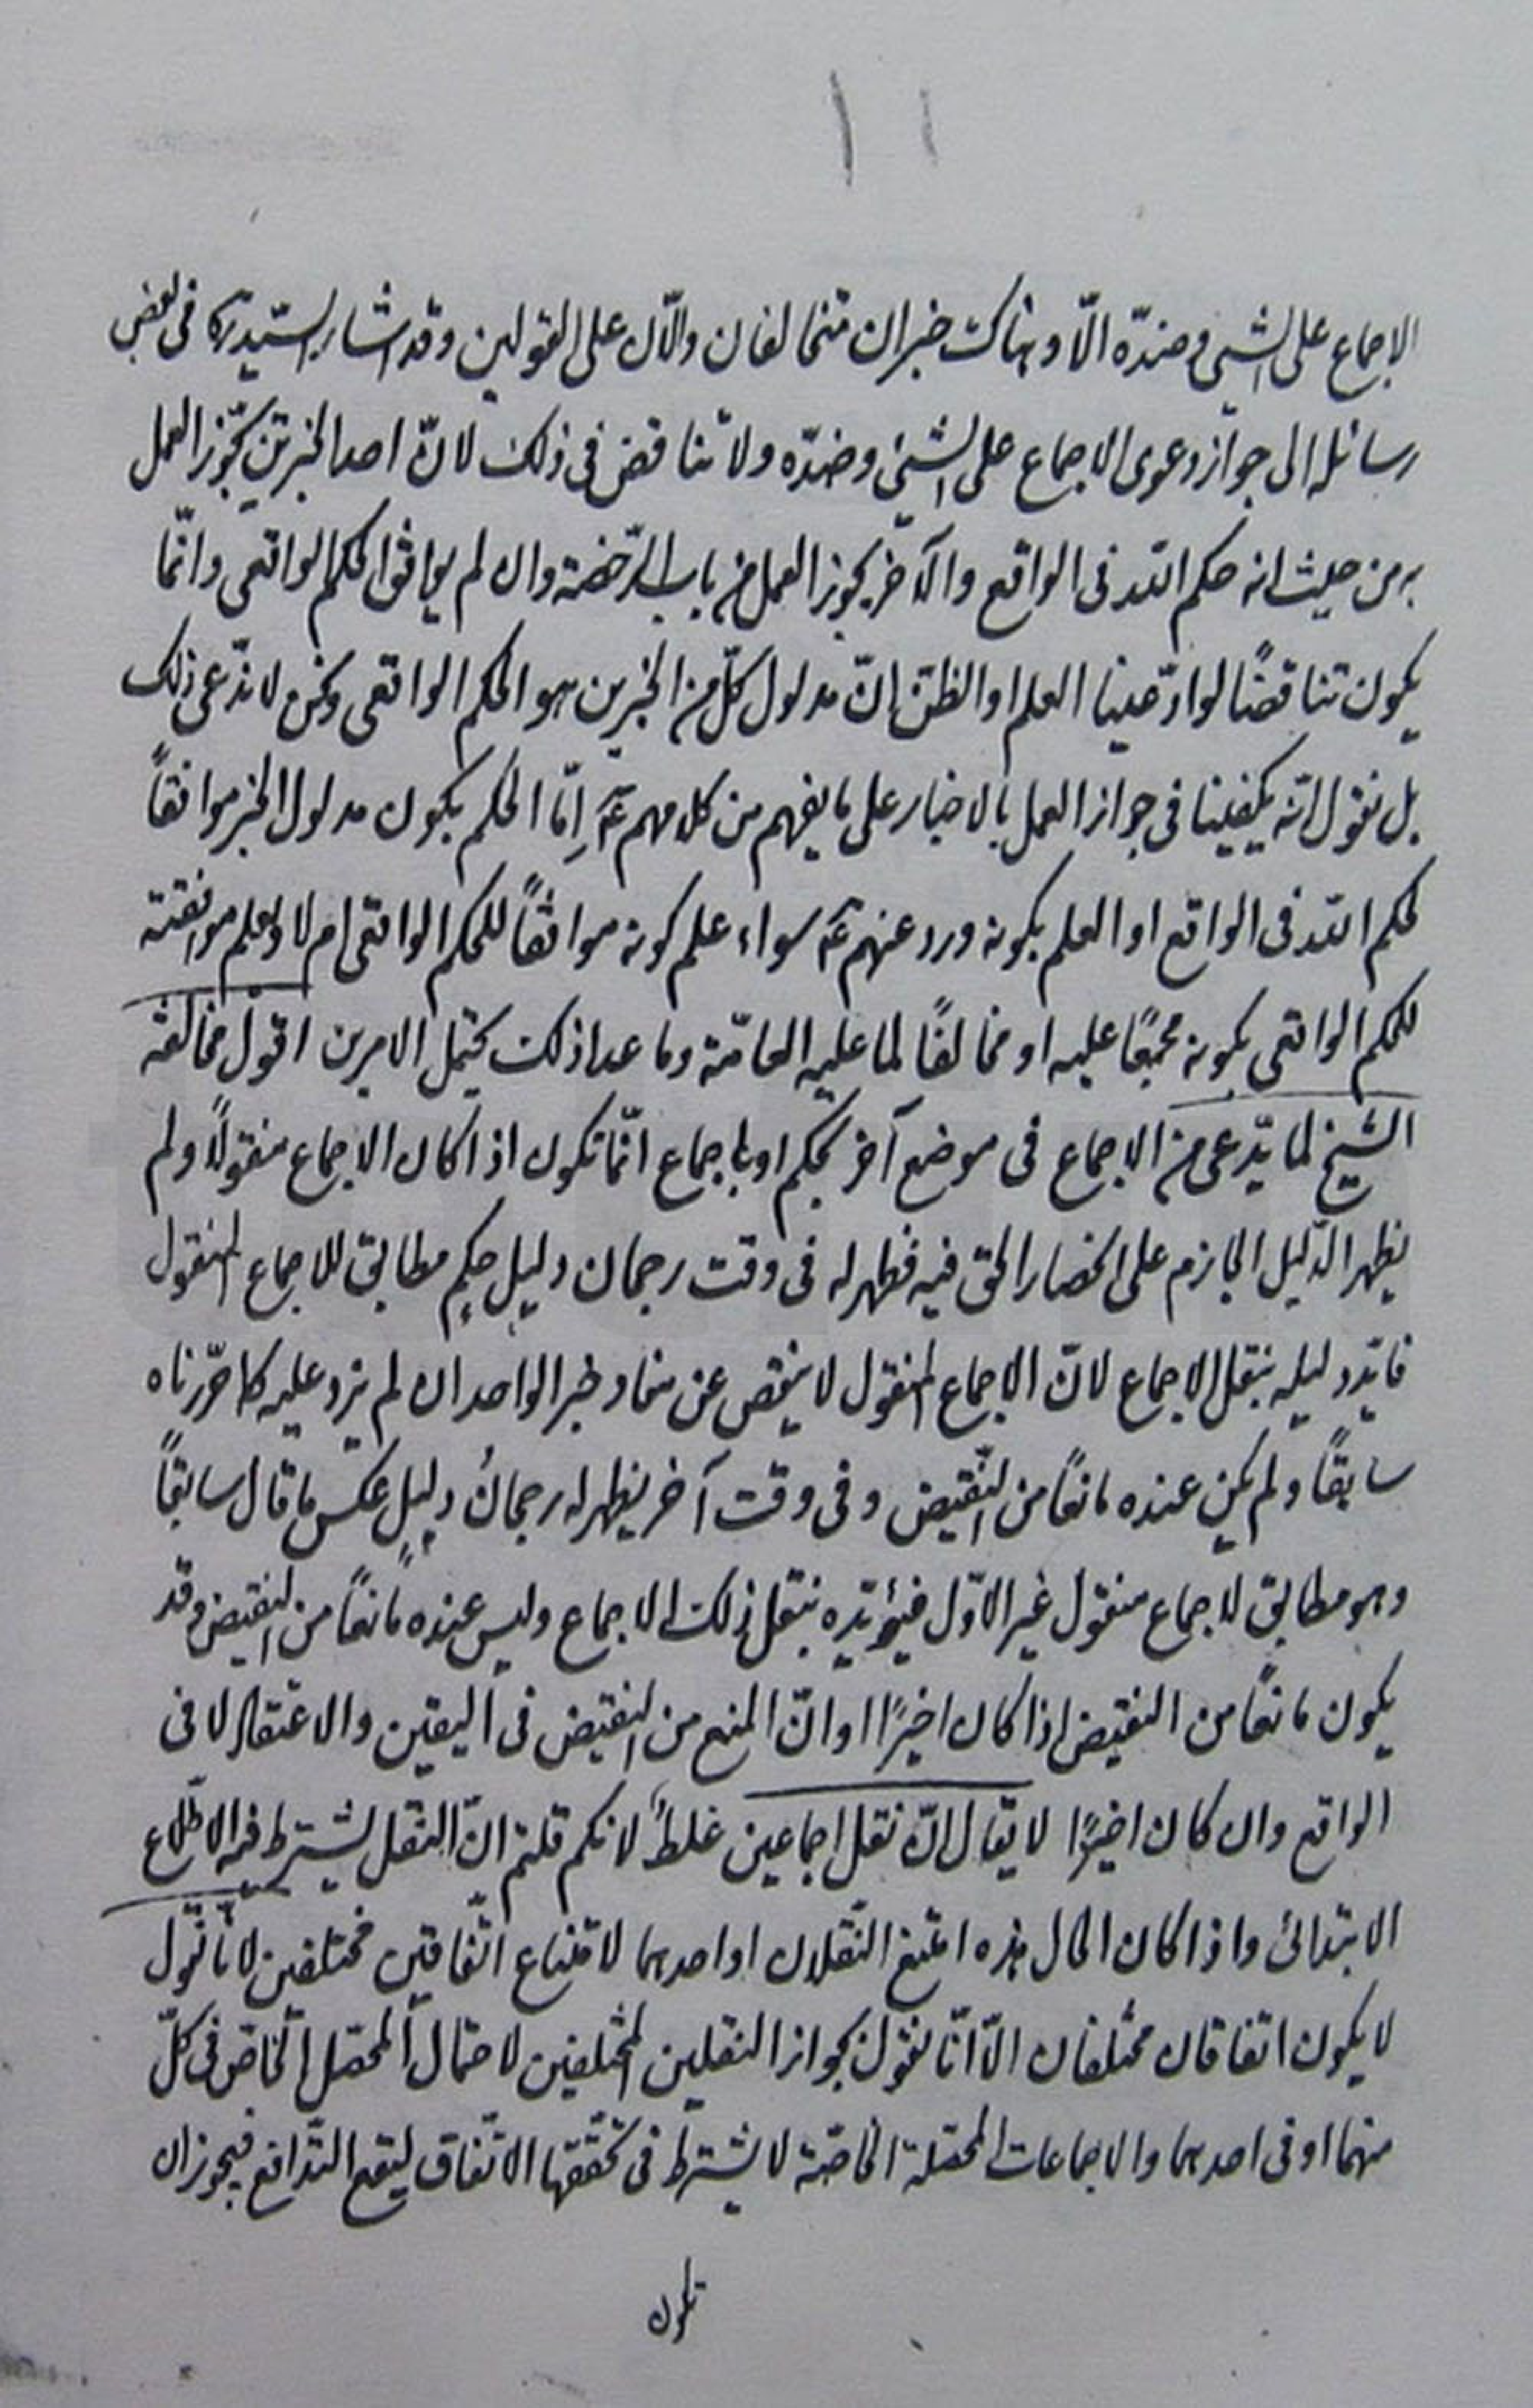 الاجماع على الشيئ وضدّه الّا وهناك خبران متخالفان دالّان على القولين وقد اشار السيّد ره فى بعض
رسائله الى جواز دعوى الاجماع على الشيئ وضدّه ولا تناقض فى ذلك لانّ احد الخبرين يجّوز العمل
به من حيث انه حكم الله فى الواقع والآخر يجوز العمل من باب الرّخصة وان لم يوافق الحكم الواقعى وانّما
يكون تناقضًا لو ادّعينا العلم او الظنّ انّ مدلول كلّ من الخبرين هو الحكم الواقعى ونحن لا ندّعى ذلك
بل نقول انّه يكفينا فى جواز العمل بالاخبار على ما يفهم من كلامهم عۤ اِمّا الحكم بكون مدلول الخبر موافقاً
لحكم الله فى الواقع او العلم بكونه ورد عنهم عۤ سواء علم كونه موافقاً للحكم الواقعى ام لا ويعلم موافقته
للحكم الواقعى بكونه مجمعًا عليه او مخالفًا لما عليه العامّة وما عدا ذلك يحتمل الامرين اقول مخالفة
الشيخ لما يدّعى من الاجماع فى موضع آخر بحكم او باجماع انّما تكون اذا كان الاجماع منقولاً ولم
يظهر الدّليل الجازم على انحصار الحق فيه فظهر له فى وقت رجحان دليلِ حكمٍ مطابق للاجماع المنقول
فايّد دليله بنقل الاجماع لانّ الاجماع المنقول لا ينقص عن مفاد خبر الواحد ان لم يزد عليه كما حرّرناه
سابقًا ولم يكن عنده مانعًا من النّقيض وفى وقت آخر يظهر له رجحانُ دليلٍ عكس ما قال سابقًا
وهو مطابق لاجماع منقول غير الاوّل فيؤيّده بنقل ذلك الاجماع وليس عنده مانعًا من النقيض وقد
يكون مانعًا من النقيض اذا كان اخيرًا او انّ المنع من النقيض فى اليقين والاعتقاد لا فى
الواقع وان كان اخيرًا لا يقال انّ نقل اجماعين غلطٌ لانكم قلتم انّ النقل يشترط فيه الاطّلاع
الابتدائى واذا كان الحال هذه امتنع النّقلان او احدهما لامتناع اتّفاقين مختلفين لانّا نقول
لا يكون اتفاقان مختلفان الّا انّا نقول بجواز النقلين المختلفين لاحتمال المحصّل الخاصّ فى كلّ
منهما او فى احدهما والاجماعات المحصّلة الخاصّة لا يشترط فى تحقّقها الاتّفاق ليقع التدافع فيجوز ان
تكون